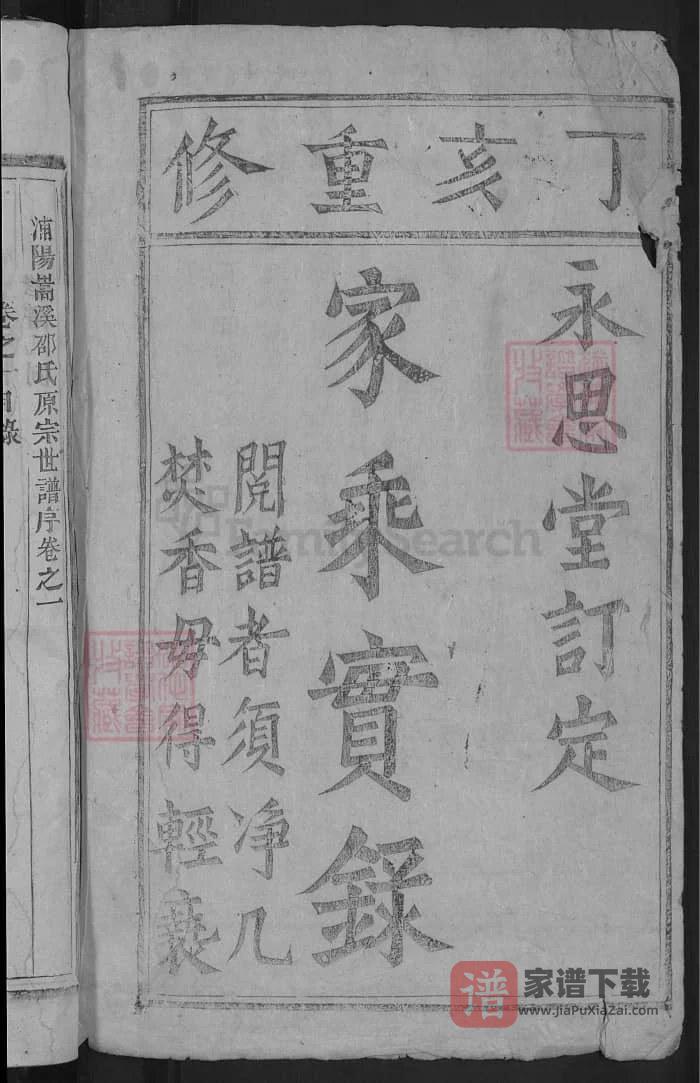 丁亥重修
永思堂訂定
家乘實錄
閱譜者須净几
焚香毋得輕褻
浦陽嵩溪邵氏原宗世譜序卷之一
卷之一目錄
FamilySearch
收藏
收藏
譜
家谱下载
www.jiaPuXiaZai.com